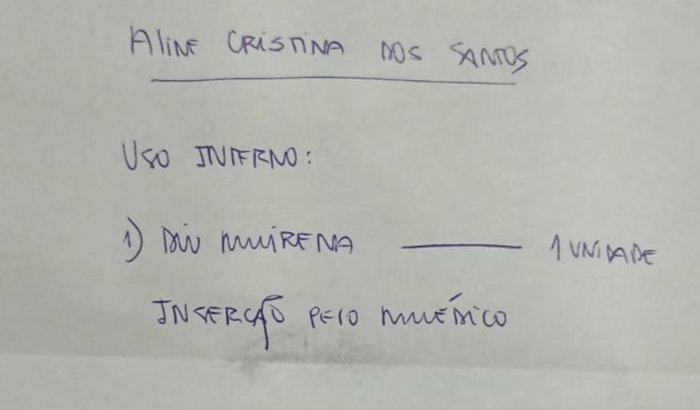 ALINE CRISTINA DOS SANTOS
USO INTERNO:
1) DIU MIRENA — 1 UNIDADE
INSERÇÃO PELO MÉDICO